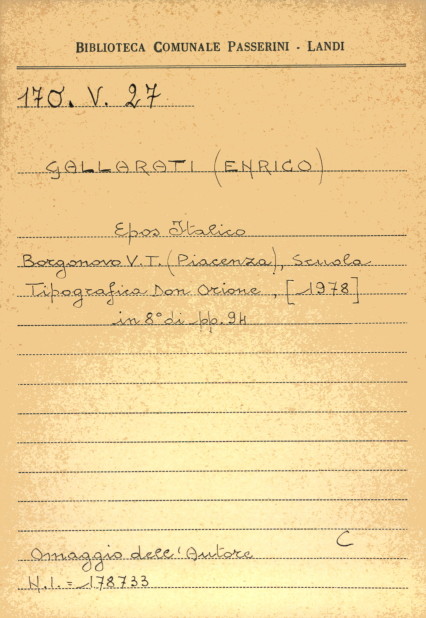 BIBLIOTECA COMUNALE PASSERINI - LANDI
170. V. 27
GALLARATI (ENRICO)
Epos Italico
Borgonovo V.T. (Piacenza), Scuola
Tipografica Don Orione, [1978]
in 8° di pp. 94
C
Omaggio dell'Autore
N.I. = 178733